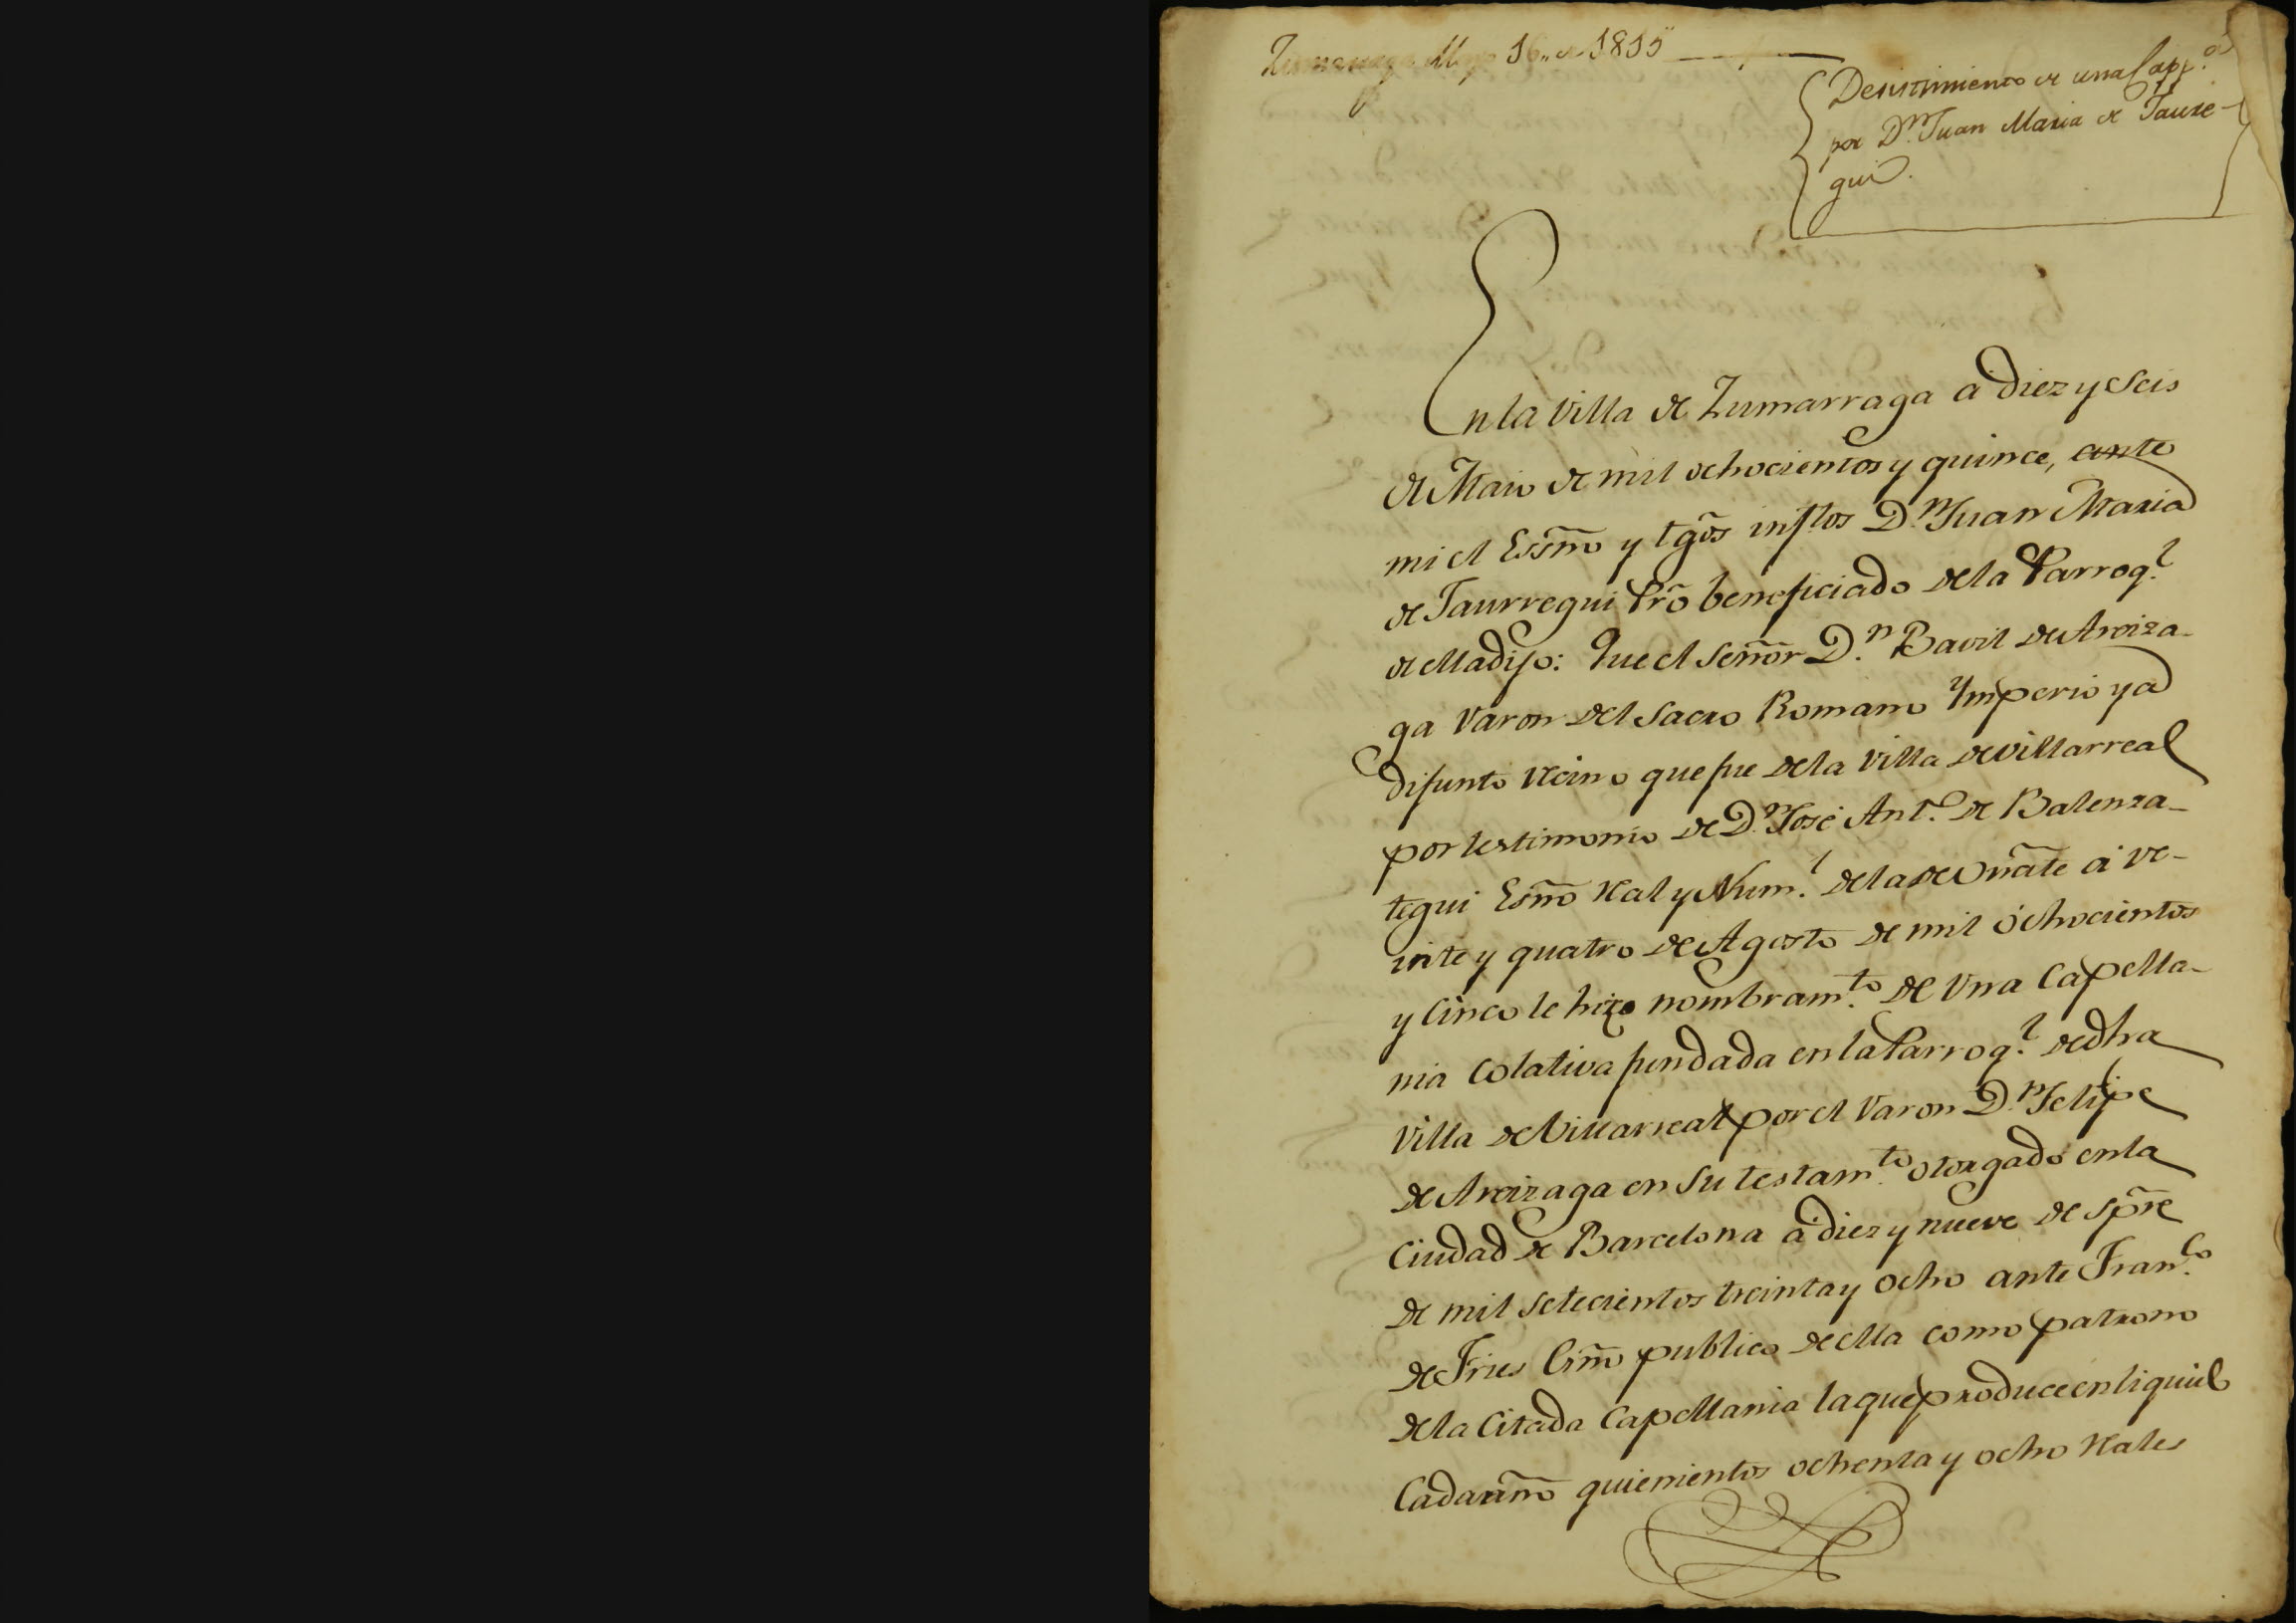 Zumarraga Mayo 16,, de 1815
Desistimiento de una Capp.a
por D.n Juan Maria de Jaure-
gui.
En la Villa de Zumarraga a diez y Seis
de Maio de mil ochocientos y quince, ante
mi el Essño y tg̃os insftos D.n Juan Maria
de Jaurregui Prõ beneficiado dela Parroq.l
de ella dijo: Que el Señor D.n Bavil de Areiza-
ga Varon del Sacro Romano Ymperio ya
difunto Vecino que fue dela Villa de Villarreal
por testimonio de D.n José Ant.o de Balenza-
tegui Esño Real y Num.l dela de Oñate á ve-
inte y quatro de Agosto de mil óchocientos
y Cinco le hizo nombram.to de Una Capella-
nia Colativa fundada en la Parroq.l de dha
Villa de Villarreal por el Varon D.n Felipe
de Areizaga en Su testam.to otorgado en la
Ciudad de Barcelona á diez y nueve de Sp̃re
de mil Setecientos treinta y Ocho ante Fran.co
de Fries Esño publico de ella como patrono
dela Citada Capellania la que produce en liquido
Cada año quienientos ochenta y ocho Rales